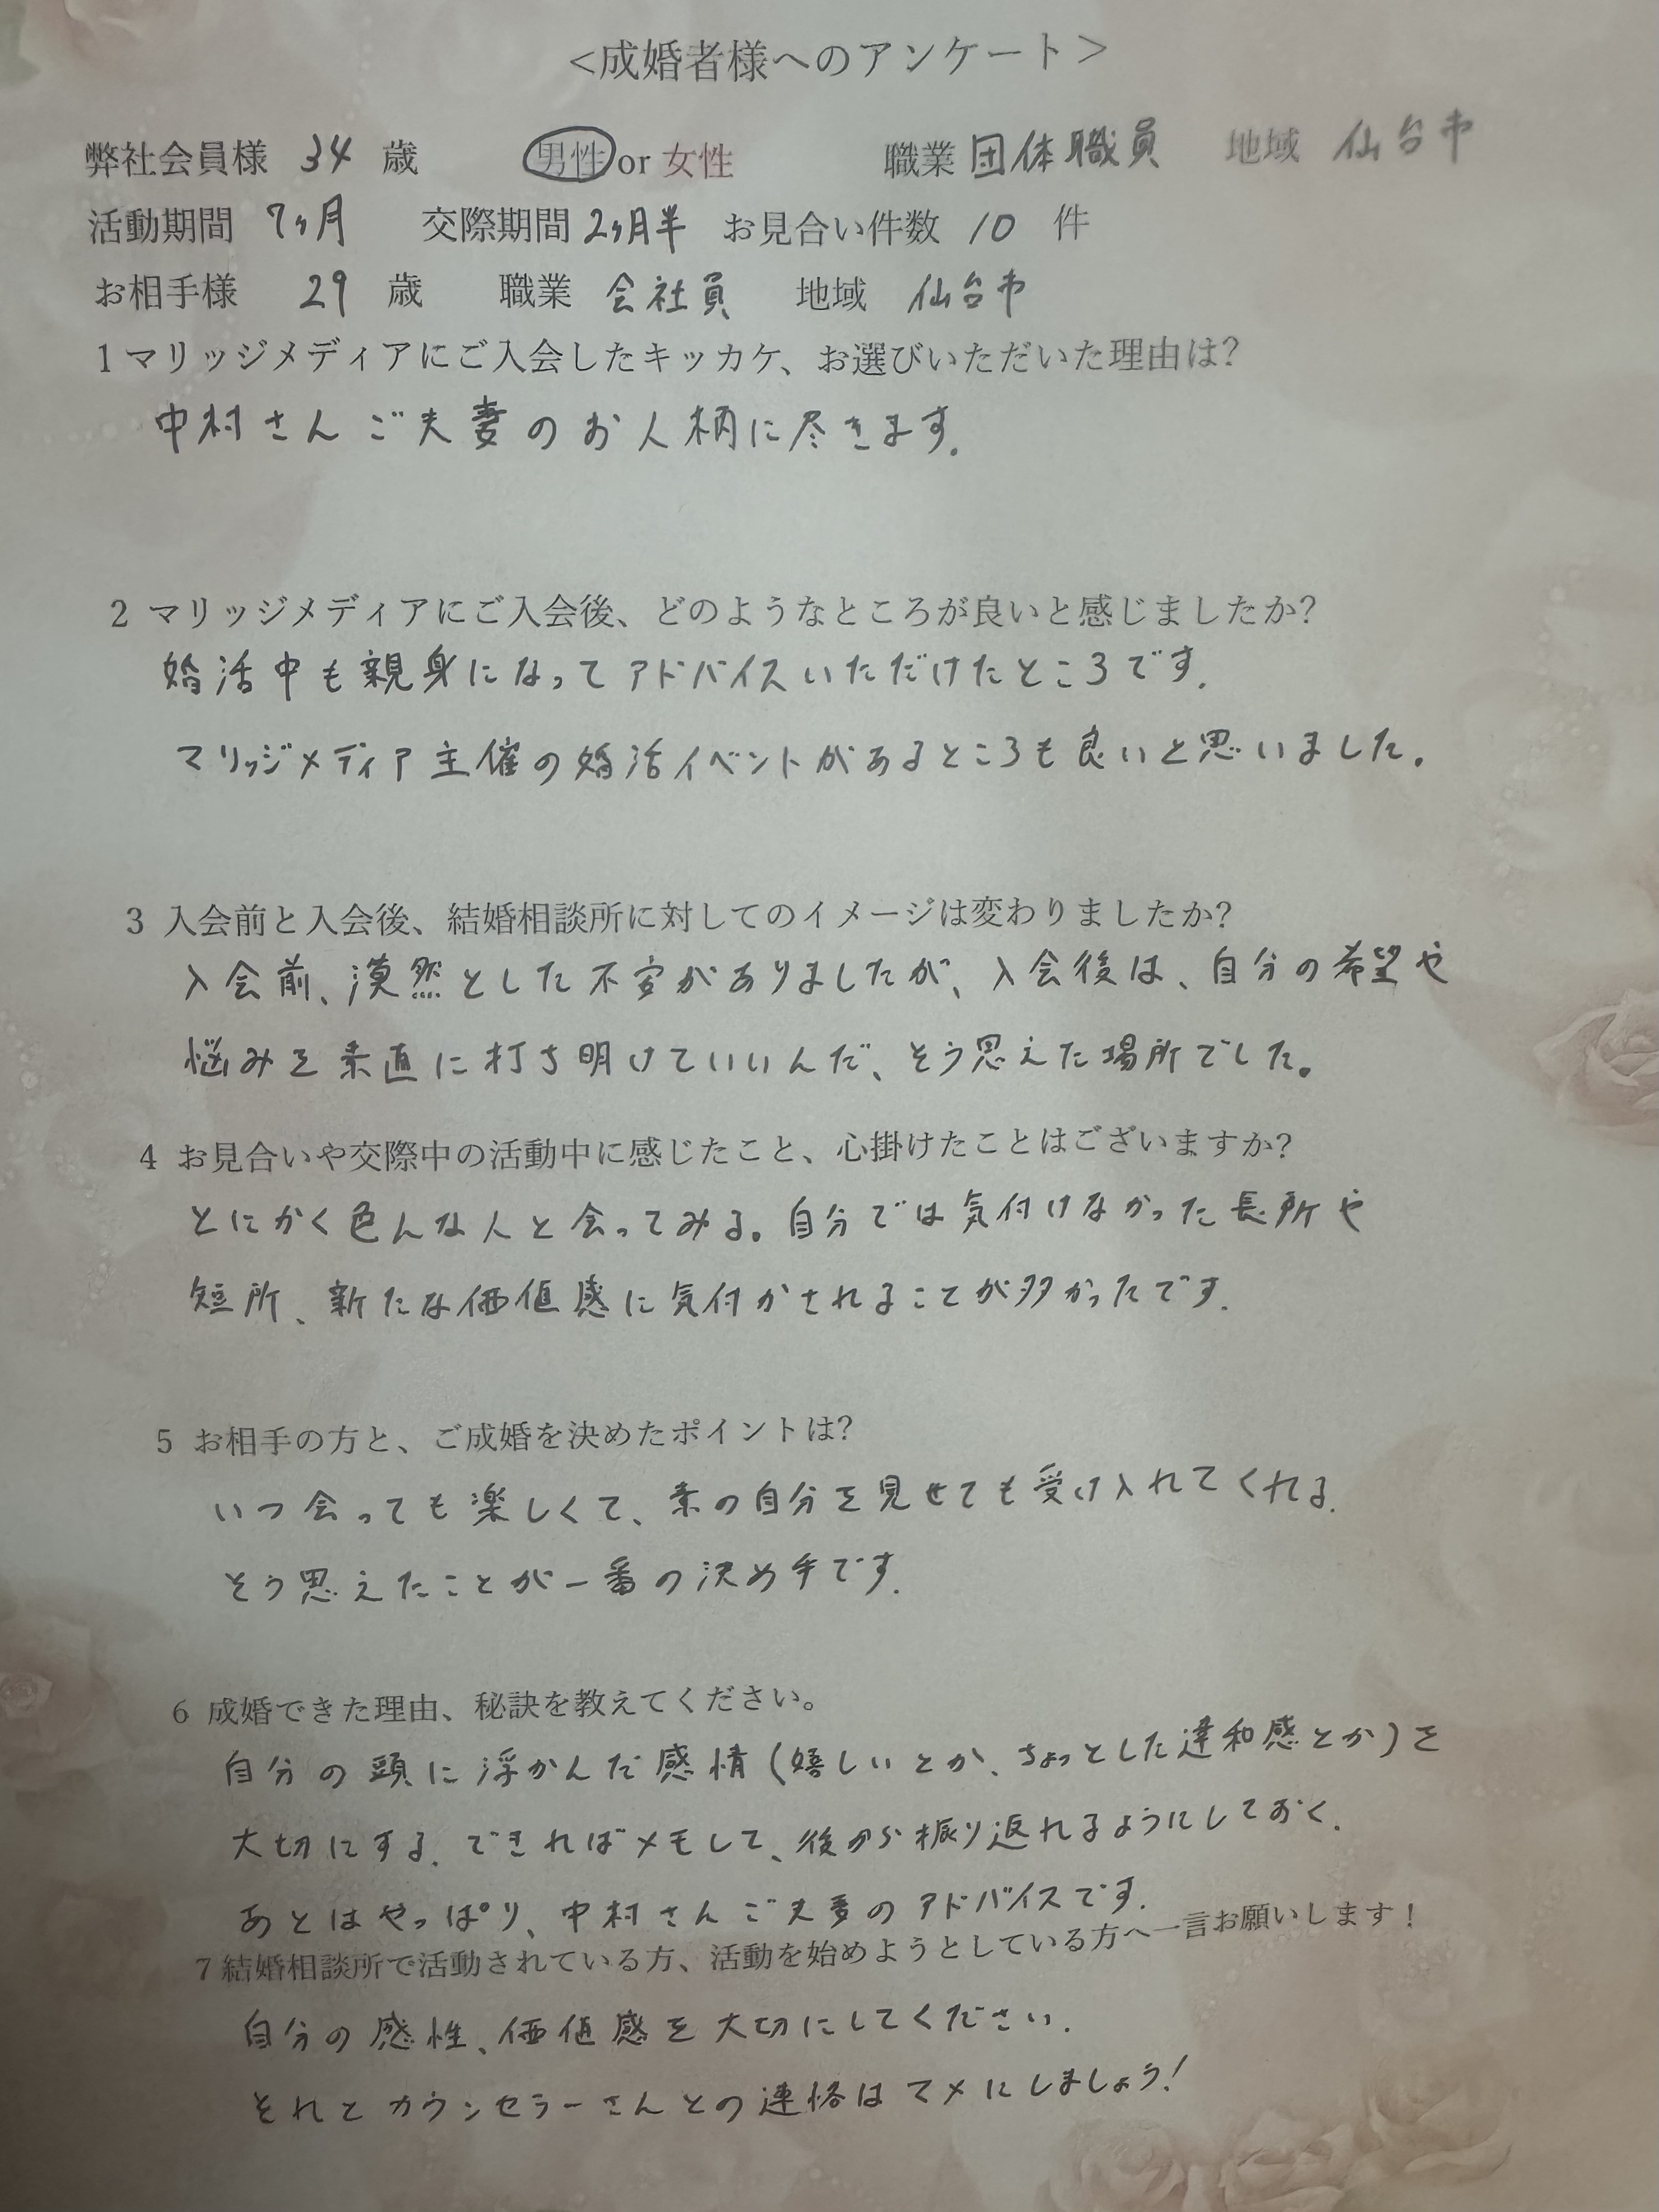 <成婚者様へのアンケート>
弊社会員様 34 歳 男性 or 女性 職業 団体職員 地域 仙台市
活動期間 7ヶ月 交際期間 2ヶ月半 お見合い件数 10 件
お相手様 29 歳 職業 会社員 地域 仙台市
1マリッジメディアにご入会したキッカケ、お選びいただいた理由は?
中村さんご夫妻のお人柄に尽きます.
2 マリッジメディアにご入会後、どのようなところが良いと感じましたか?
婚活中も親身になってアドバイスいただけたところです.
マリッジメディア主催の婚活イベントがあるところも良いと思いました。
3 入会前と入会後、結婚相談所に対してのイメージは変わりましたか?
入会前、漠然とした不安がありましたが、入会後は、自分の希望や
悩みを素直に打ち明けていいんだ、そう思えた場所でした。
4 お見合いや交際中の活動中に感じたこと、心掛けたことはございますか?
とにかく色んな人と会ってみる。自分では気付けなかった長所や
短所、新たな価値感に気付かされることが多かったです.
5 お相手の方と、ご成婚を決めたポイントは?
いつ会っても楽しくて、素の自分を見せても受け入れてくれる.
そう思えたことが一番の決め手です.
6 成婚できた理由、秘訣を教えてください。
自分の頭に浮かんだ感情(嬉しいとか、ちょっとした違和感とか)を
大切にする. できればメモして、後から振り返れるようにしておく.
あとはやっぱり、中村さんご夫妻のアドバイスです.
7結婚相談所で活動されている方、活動を始めようとしている方へ一言お願いします!
自分の感性、価値感を大切にしてください.
それとカウンセラーさんとの連絡はマメにしましょう!